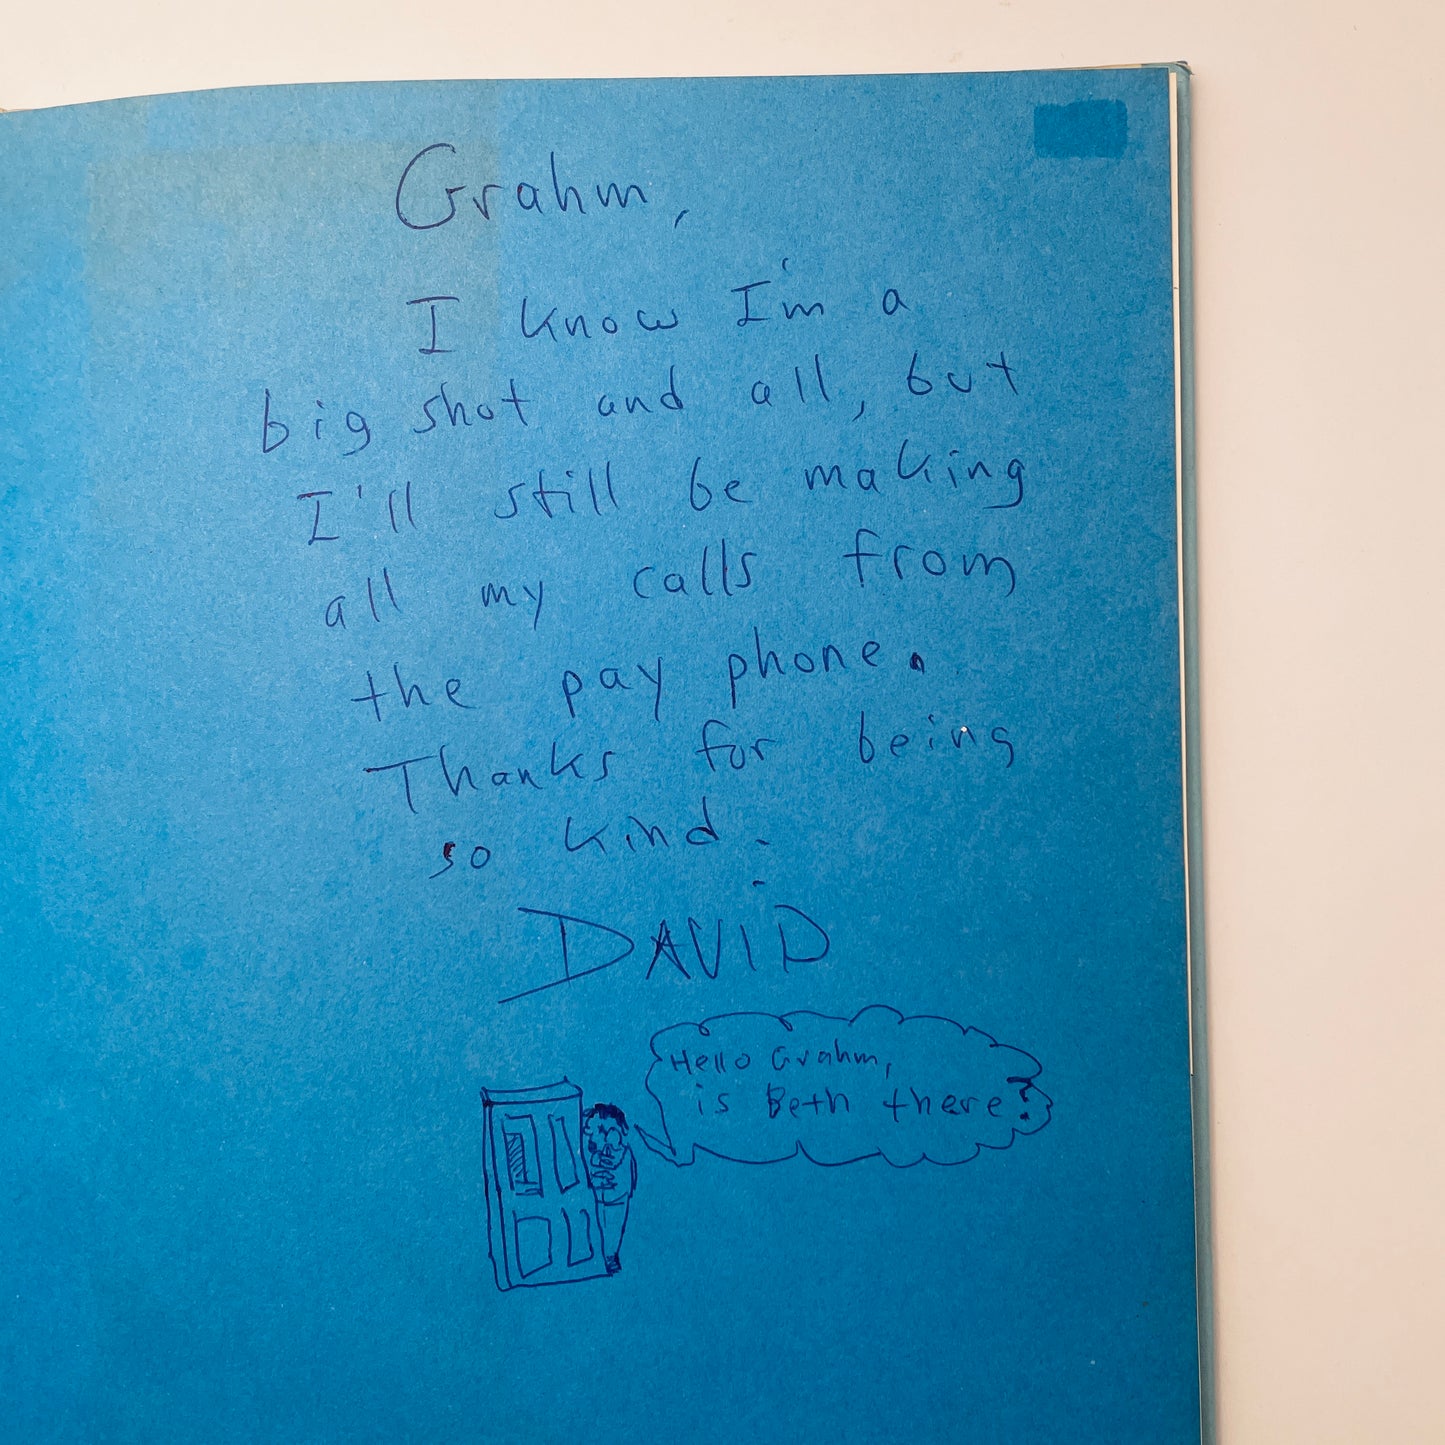 Grahm,
I know I'm a
big shot and all, but
I'll still be making
all my calls from
the pay phone.
Thanks for being
so kind.
DAVID
Hello Grahm,
is Beth there?